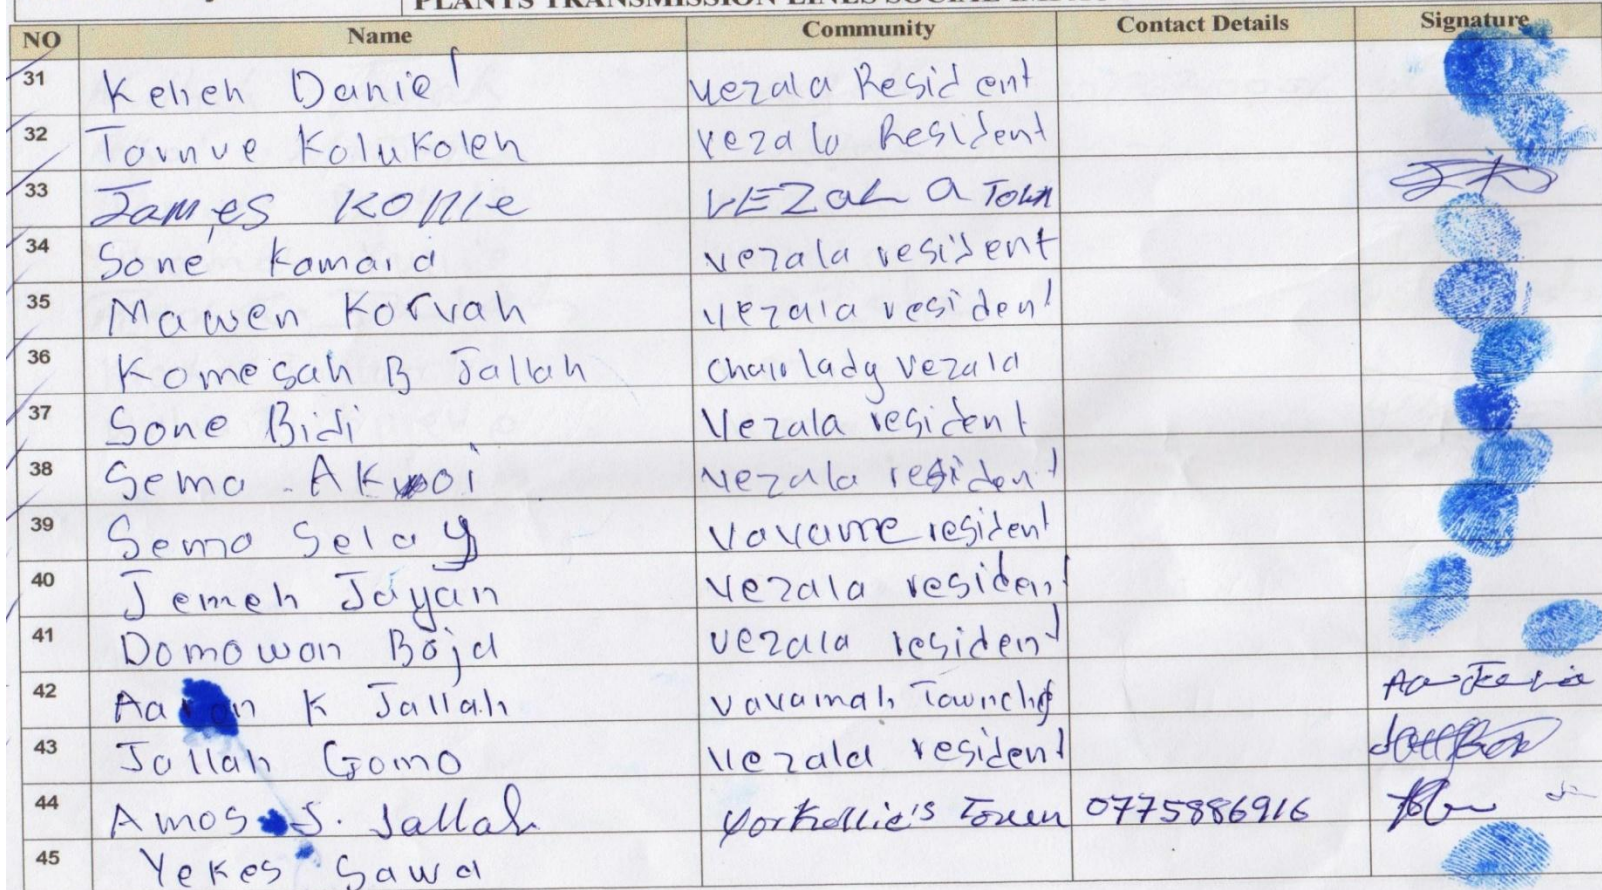 PLANTS TRANSMISSION LINES SOCIAL
NO Name Community Contact Details Signature
31 Keheh Daniel Vezala Resident
32 Tornue Kolukoleh Vezala Resident
33 James KOllie VEZALA TOWN
34 Sone Kamara vezala resident
35 Mawen Korvah vezala resident
36 Komesah B Jallah Chairlady Vezala
37 Sone Bidi Vezala resident
38 Sema Akwoi vezala resident
39 Semo Selay resident
40 Jemeh Jayan Vezala resident
41 Domowon vezala resident
42 K Jallah vavamah
43 Jallah Gomo Vezala resident
44 Amos S. Jallah Town 0775886916
45 Yekes Sawa